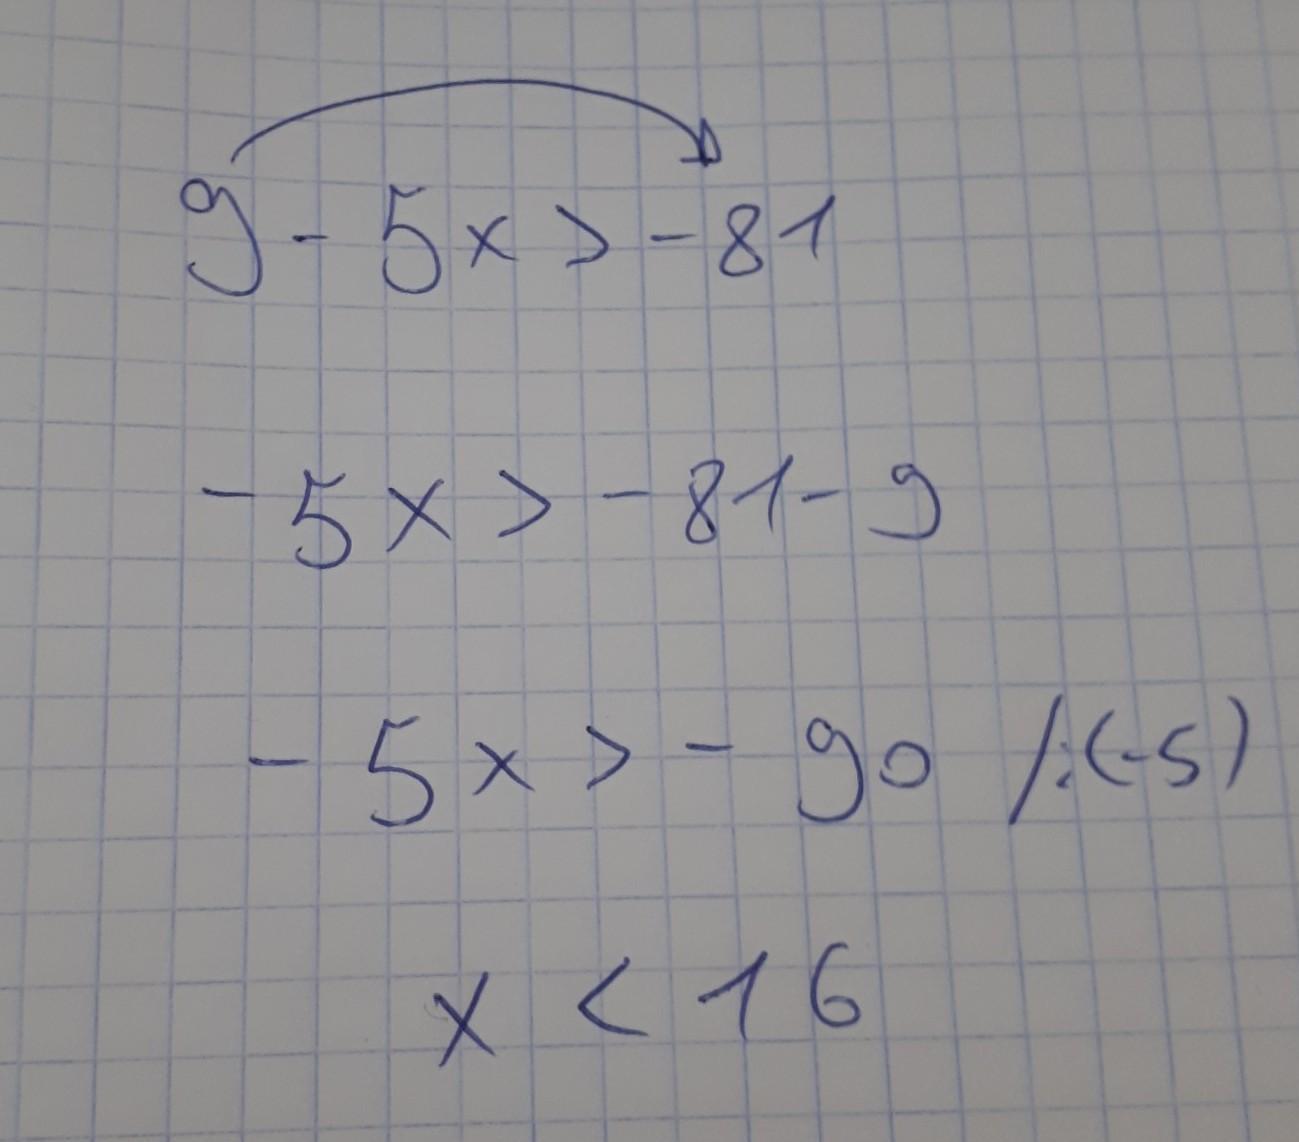 9 - 5x > -81
-5x > -81 - 9
-5x > -90 /:(-5)
x < 16